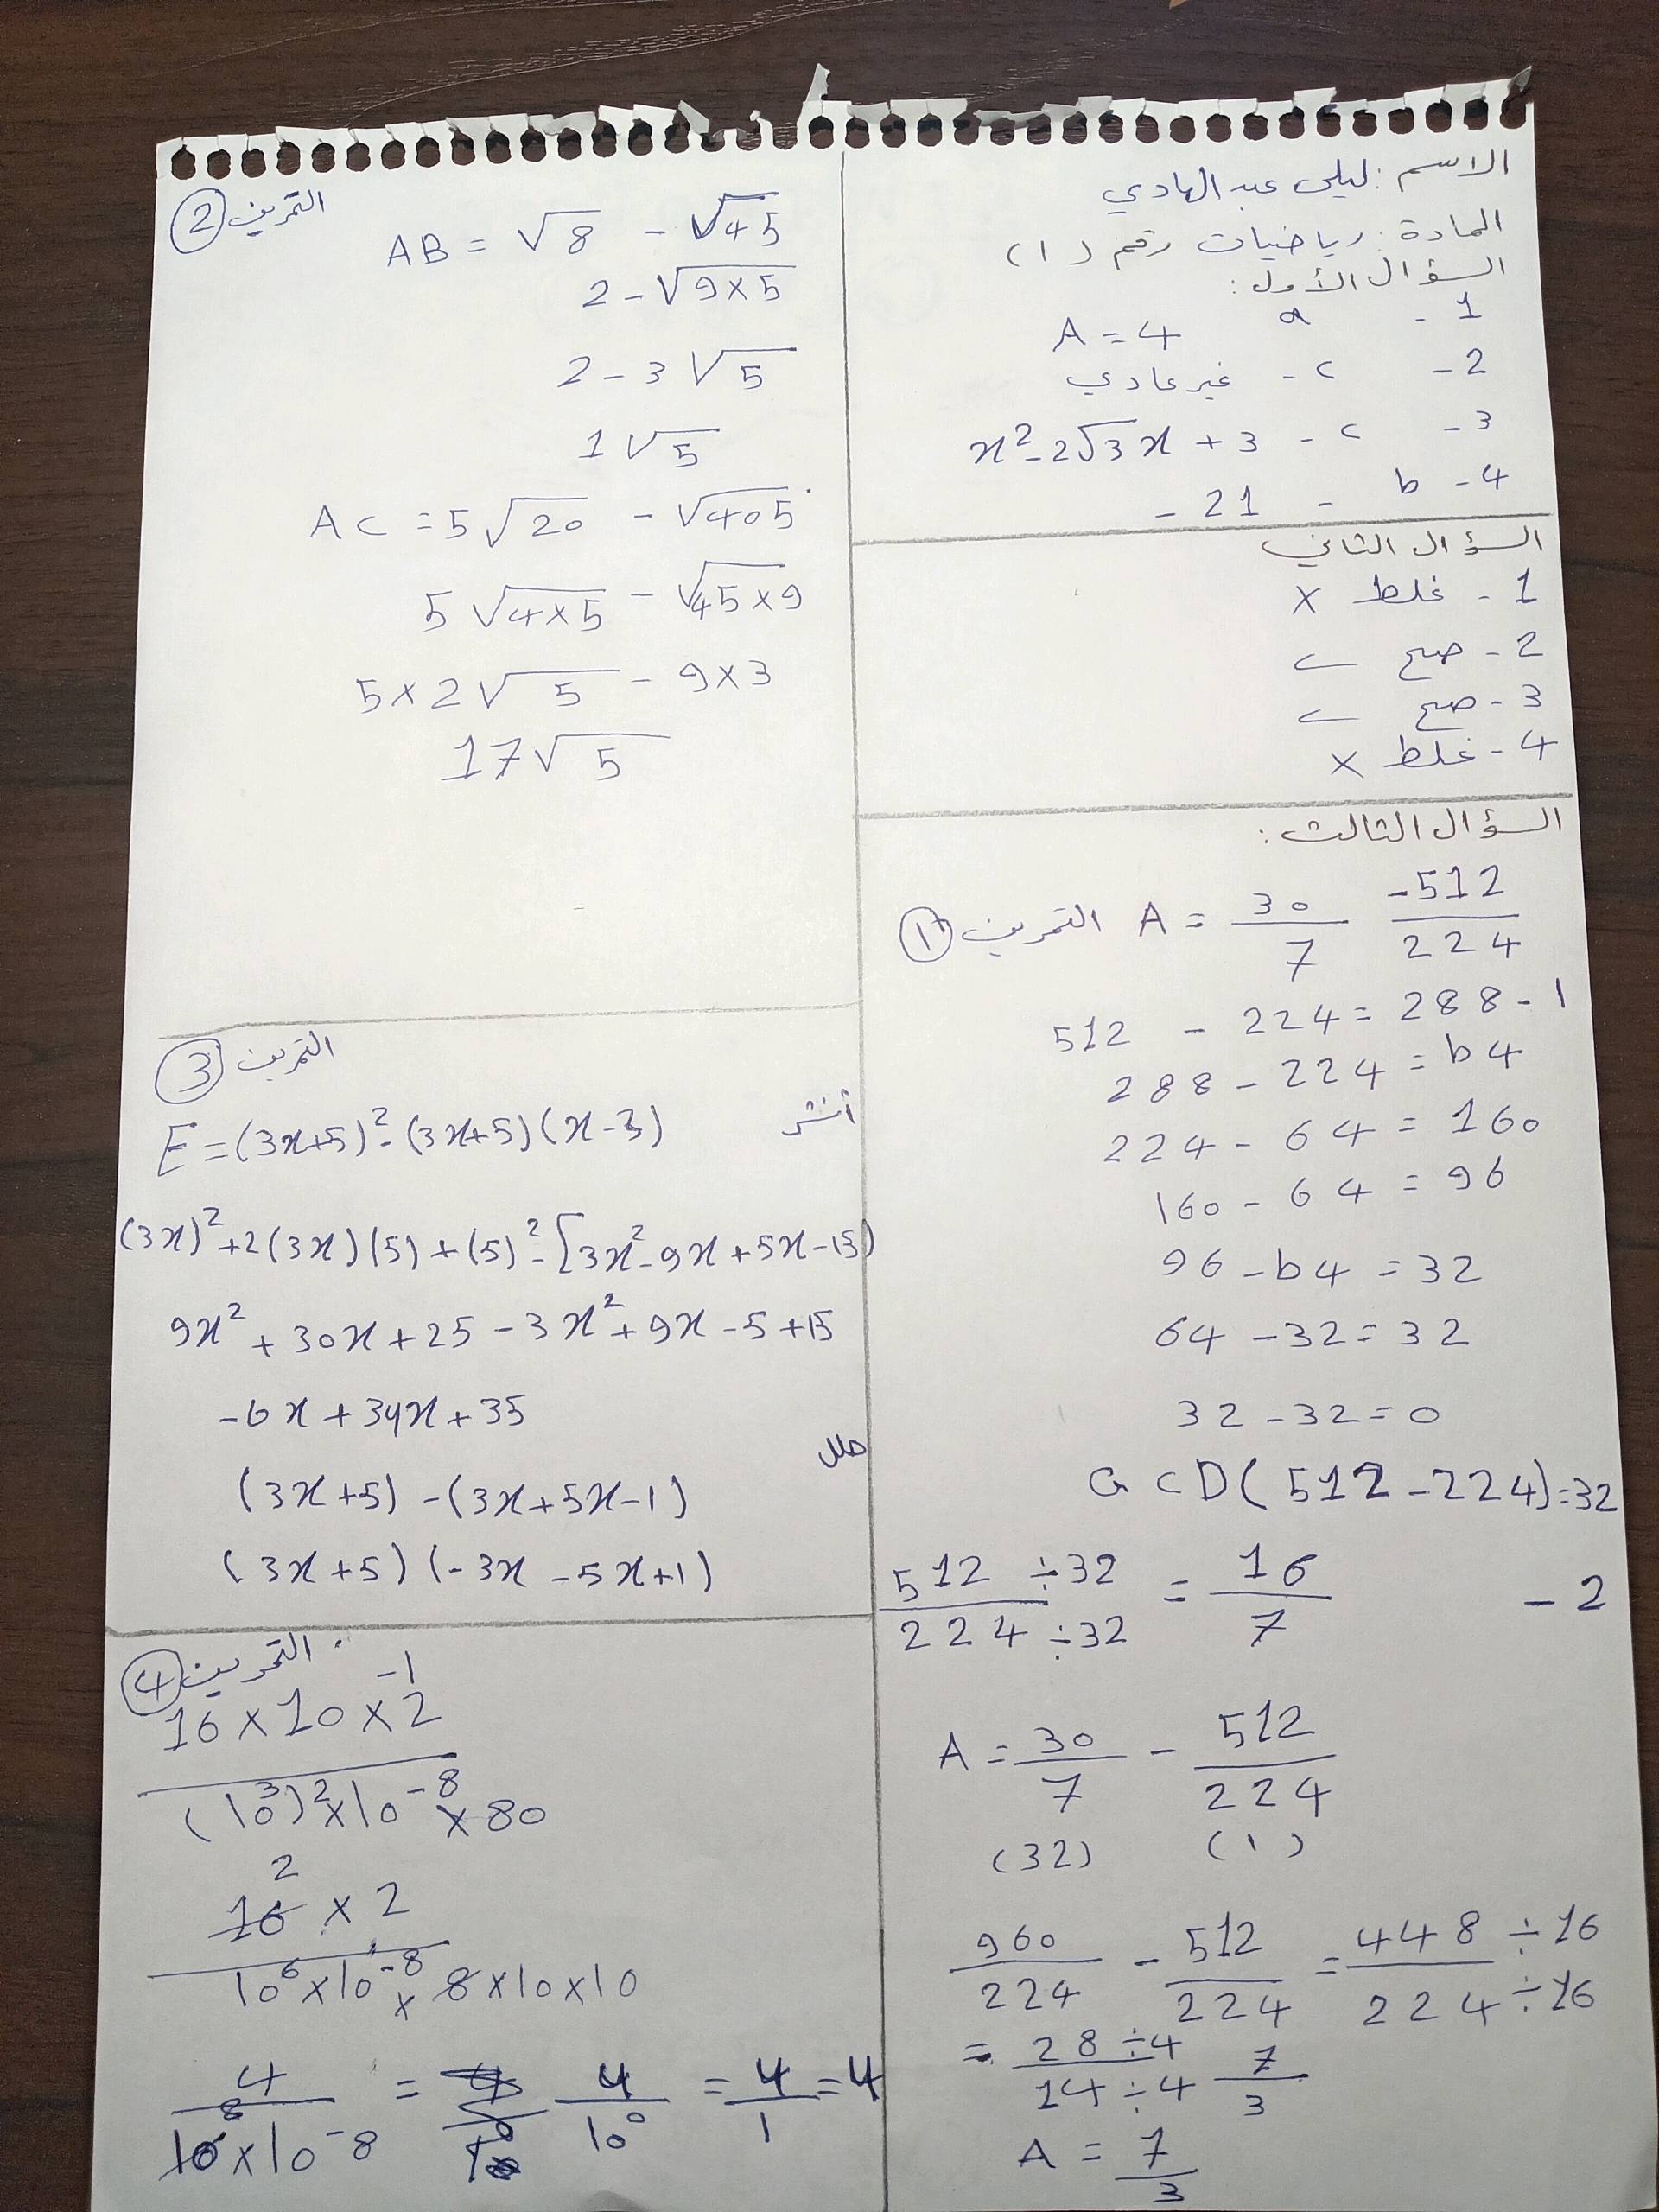 الاسم: ليلى عبد الهادي
المادة: رياضيات رقم (1)
السؤال الأول:
1 - a A = 4
2 - c - غير عادي
3 - c - x² - 2√3 x + 3
4 - b - -21
السؤال الثاني
1 - غلط ×
2 - صح ✓
3 - صح ✓
4 - غلط ×
السؤال الثالث:
التمرين ① A = 30/7 - 512/224
1 - 512 - 224 = 288
288 - 224 = 64
224 - 64 = 160
160 - 64 = 96
96 - 64 = 32
64 - 32 = 32
32 - 32 = 0
GCD(512 - 224) = 32
2 - 512 ÷32 / 224 ÷32 = 16/7
A = 30/7 - 512/224
(32) (1)
960/224 - 512/224 = 448 ÷16 / 224 ÷16
= 28 ÷4 / 14 ÷4 7/3
A = 7/3
التمرين ②
AB = √8 - √45
2 - √9×5
2 - 3√5
1√5
AC = 5√20 - √405
5√4×5 - √45×9
5×2√5 - 9×3
17√5
التمرين ③
أنشر E = (3x+5)² - (3x+5)(x-3)
(3x)² + 2(3x)(5) + (5)² - [3x² - 9x + 5x - 15)
9x² + 30x + 25 - 3x² + 9x - 5 + 15
-6x + 34x + 35
حلل
(3x+5) - (3x+5x-1)
(3x+5)(-3x-5x+1)
التمرين ④
16×10×2⁻¹ / (10³)²×10⁻⁸×80
16 2 × 2 / 10⁶×10⁻⁸×8×10×10
4 / 10⁸×10⁻⁸ = 4/10⁰ = 4/1 = 4